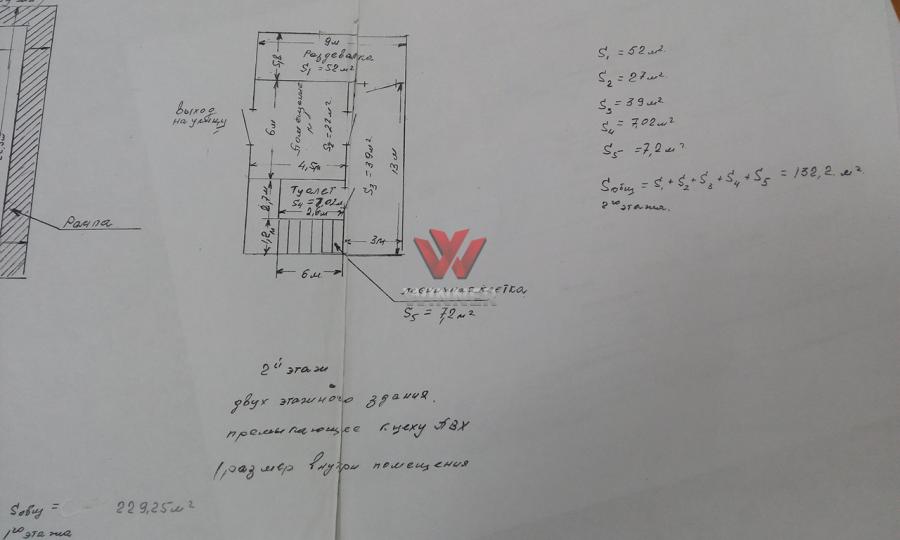 9м
Раздевалка
S1 = 52 м²
5,8
Выход
на улицу
6м
Помещение
N1
S2 = 27м²
4,5м
S3 = 39м²
13м
Туалет
S4 = 7,02м²
2,6м
2,7м
1,2м
3м
6м
Рампа
клетка
S5 = 7,2м²
S1 = 52м².
S2 = 27м²
S3 = 39м²
S4 = 7,02м²
S5 = 7,2м²
Sобщ = S1 + S2 + S3 + S4 + S5 = 132,2.м².
2го этажа.
2й этаж
двух этажного здания.
примыкающее к цеху ПВХ
/размер внутри помещения
Sобщ = 229,25м²
1го этажа